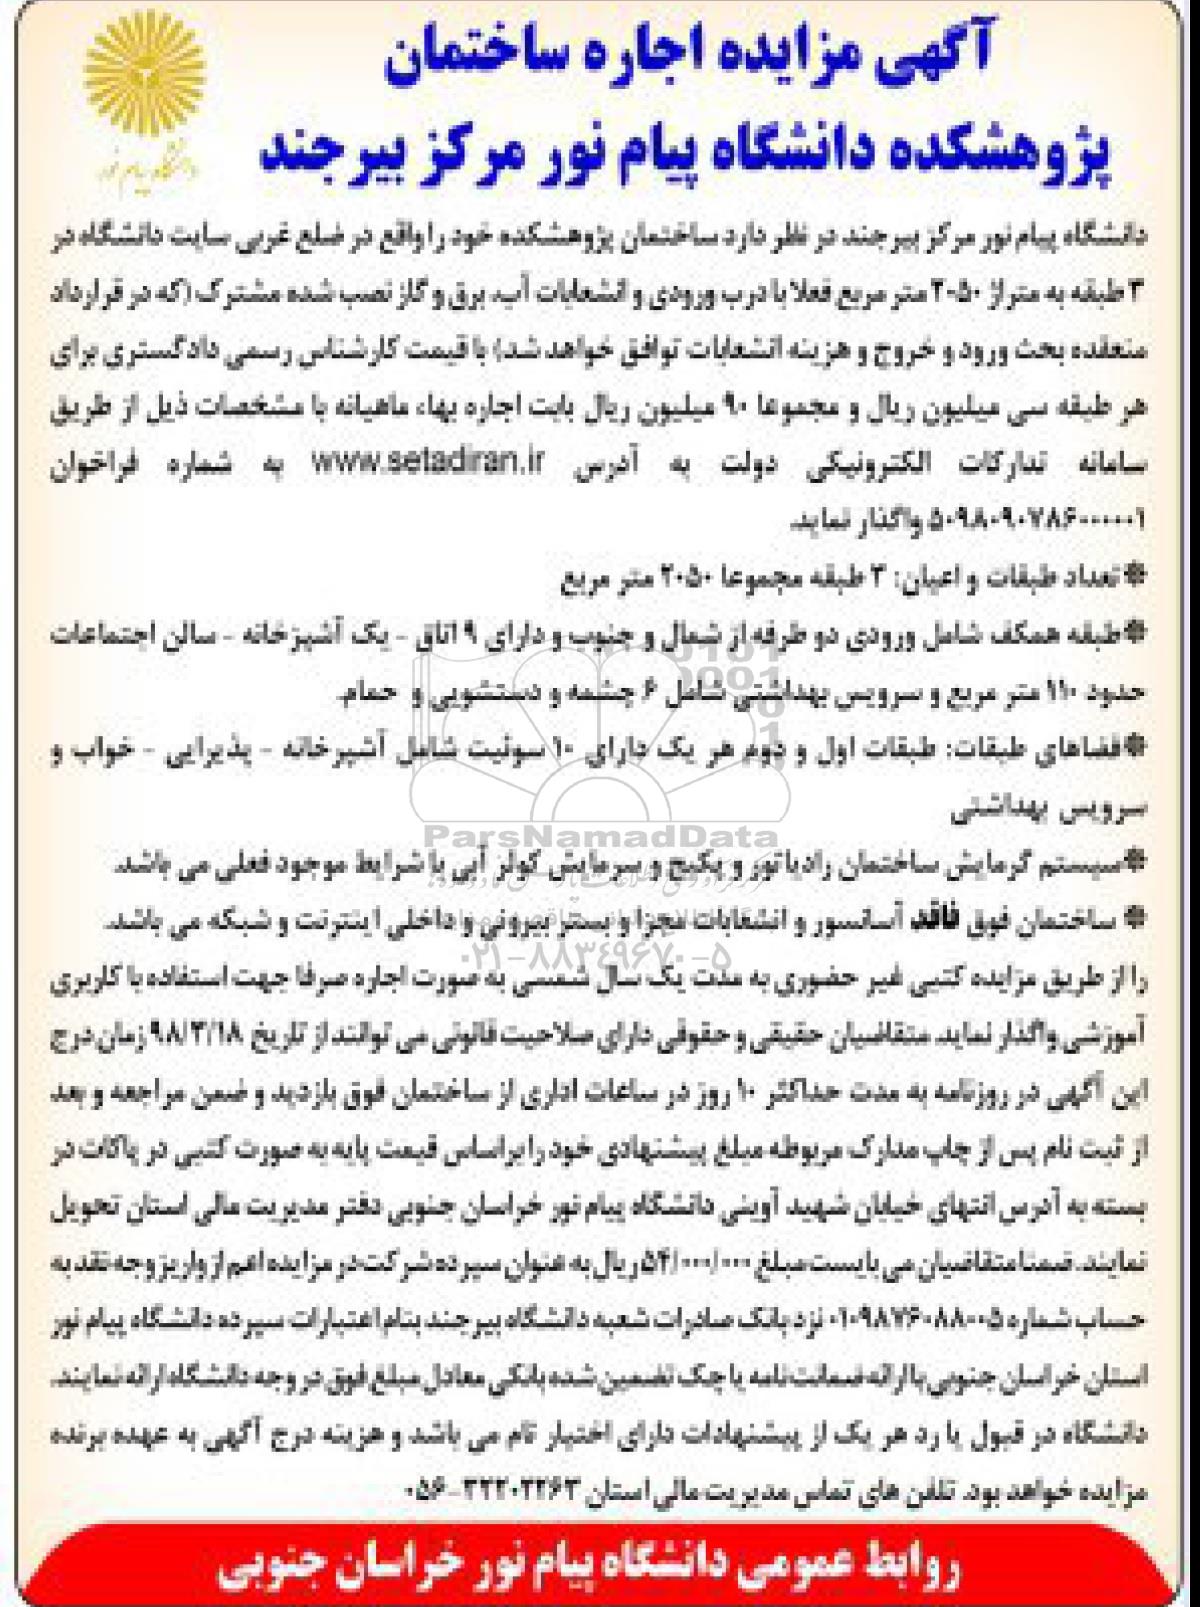 آگهی مزایده اجاره ساختمان
پژوهشکده دانشگاه پیام نور مرکز بیرجند
دانشگاه پیام نور
دانشگاه پیام نور مرکز بیرجند در نظر دارد ساختمان پژوهشکده خود را واقع در ضلع غربی سایت دانشگاه در
۳ طبقه به متراژ ۲۰۵۰ متر مربع فعلا با درب ورودی و انشعابات آب، برق و گاز نصب شده مشترک (که در قرارداد
منعقده بحث ورود و خروج و هزینه انشعابات توافق خواهد شد) با قیمت کارشناس رسمی دادگستری برای
هر طبقه سی میلیون ریال و مجموعا ۹۰ میلیون ریال بابت اجاره بهاء ماهیانه با مشخصات ذیل از طریق
سامانه تدارکات الکترونیکی دولت به آدرس www.setadiran.ir به شماره فراخوان
۵۰۹۸۰۹۰۷۸۶۰۰۰۰۰۱ واگذار نماید.
*تعداد طبقات و اعیان: ۳ طبقه مجموعا ۲۰۵۰ متر مربع
*طبقه همکف شامل ورودی دو طرفه از شمال و جنوب و دارای ۹ اتاق - یک آشپزخانه - سالن اجتماعات
حدود ۱۱۰ متر مربع و سرویس بهداشتی شامل ۶ چشمه و دستشویی و حمام.
*فضاهای طبقات: طبقات اول و دوم هر یک دارای ۱۰ سوئیت شامل آشپرخانه - پذیرایی - خواب و
سرویس بهداشتی
ParsNamadData
*سیستم گرمایش ساختمان رادیاتور و پکیج و سرمایش کولر آبی با شرایط موجود فعلی می باشد.
* ساختمان فوق فاقد آسانسور و انشعابات مجزا و بستر بیرونی و داخلی اینترنت و شبکه می باشد.
۰۲۱-۸۸۳۴۹۶۷۰-۵
را از طریق مزایده کتبی غیر حضوری به مدت یک سال شمسی به صورت اجاره صرفا جهت استفاده با کاربری
آموزشی واگذار نماید. متقاضیان حقیقی و حقوقی دارای صلاحیت قانونی می توانند از تاریخ ۹۸/۳/۱۸ زمان درج
این آگهی در روزنامه به مدت حداکثر ۱۰ روز در ساعات اداری از ساختمان فوق بازدید و ضمن مراجعه و بعد
از ثبت نام پس از چاپ مدارک مربوطه مبلغ پیشنهادی خود را براساس قیمت پایه به صورت کتبی در پاکات در
بسته به آدرس انتهای خیابان شهید آوینی دانشگاه پیام نور خراسان جنوبی دفتر مدیریت مالی استان تحویل
نمایند. ضمنا متقاضیان می بایست مبلغ ۵۴/۰۰۰/۰۰۰ ریال به عنوان سپرده شرکت در مزایده اعم از واریز وجه نقد به
حساب شماره ۰۱۰۹۸۷۶۰۸۸۰۰۵ نزد بانک صادرات شعبه دانشگاه بیرجند بنام اعتبارات سپرده دانشگاه پیام نور
استان خراسان جنوبی یا ارائه ضمانت نامه یا چک تضمین شده بانکی معادل مبلغ فوق در وجه دانشگاه ارائه نمایند.
دانشگاه در قبول یا رد هر یک از پیشنهادات دارای اختیار تام می باشد و هزینه درج آگهی به عهده برنده
مزایده خواهد بود. تلفن های تماس مدیریت مالی استان ۳۲۲۰۲۲۶۳-۰۵۶
روابط عمومی دانشگاه پیام نور خراسان جنوبی